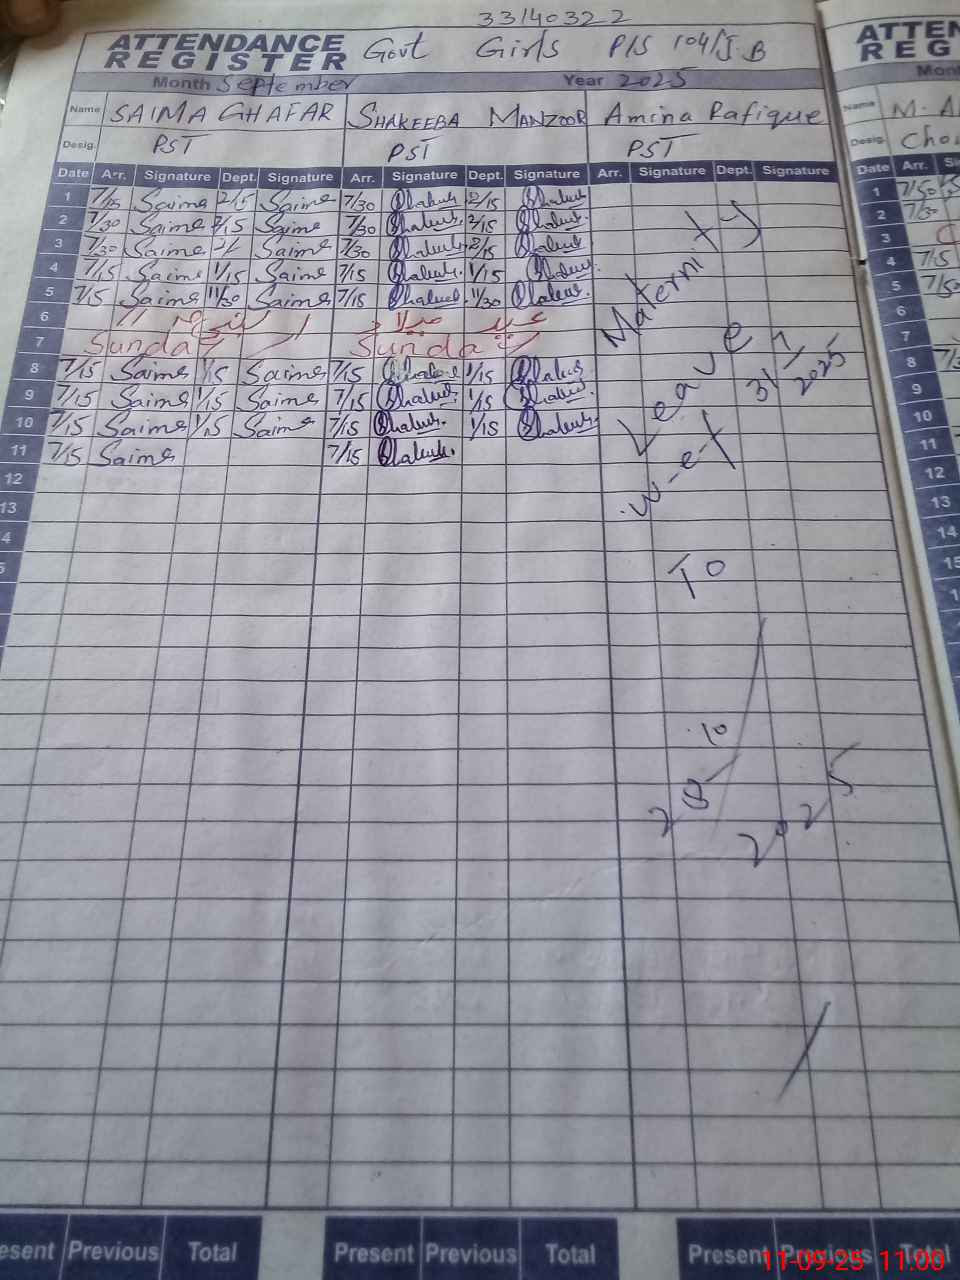 33140322
ATTENDANCE REGISTER Govt Girls P/S 104/J.B
Month September Year 2025
Name SAIMA GHAFAR SHAKEEBA MANZOOR Amina Rafique
Desig. PST PST PST
Date Arr. Signature Dept. Signature Arr. Signature Dept. Signature Arr. Signature Dept. Signature
1 Saima 2/15 Saima 7/30 2/15
2 7/30 Saima 2/15 Saima 7/30 2/15
3 7/30 Saima Saima 7/30 2/15
4 7/15 Saima 1/15 Saima 7/15 1/15
5 7/15 Saima 11/30 Saima 7/15 11/30
6 عید میلاد
7 Sunday Sunday
8 7/15 Saima 1/15 Saima 7/15 1/15
9 7/15 Saima 1/15 Saima 7/15 1/15
10 7/15 Saima 1/15 Saima 7/15 1/15
11 7/15 Saima 7/15
12
13
4
5
Maternity
Leave
w-e-f 31-7-2025
To
28-10-2025
Present Previous Total Present Previous Total Present Previous Total
ATTEN
REG
Mont
Name M. A
Desig. Cho
Date Arr. Si
1 7/50
2 7/30
3
4 7/15
5 7/50
6
7
8
9
10
11
12
13
14
15
11-09-25 11:00